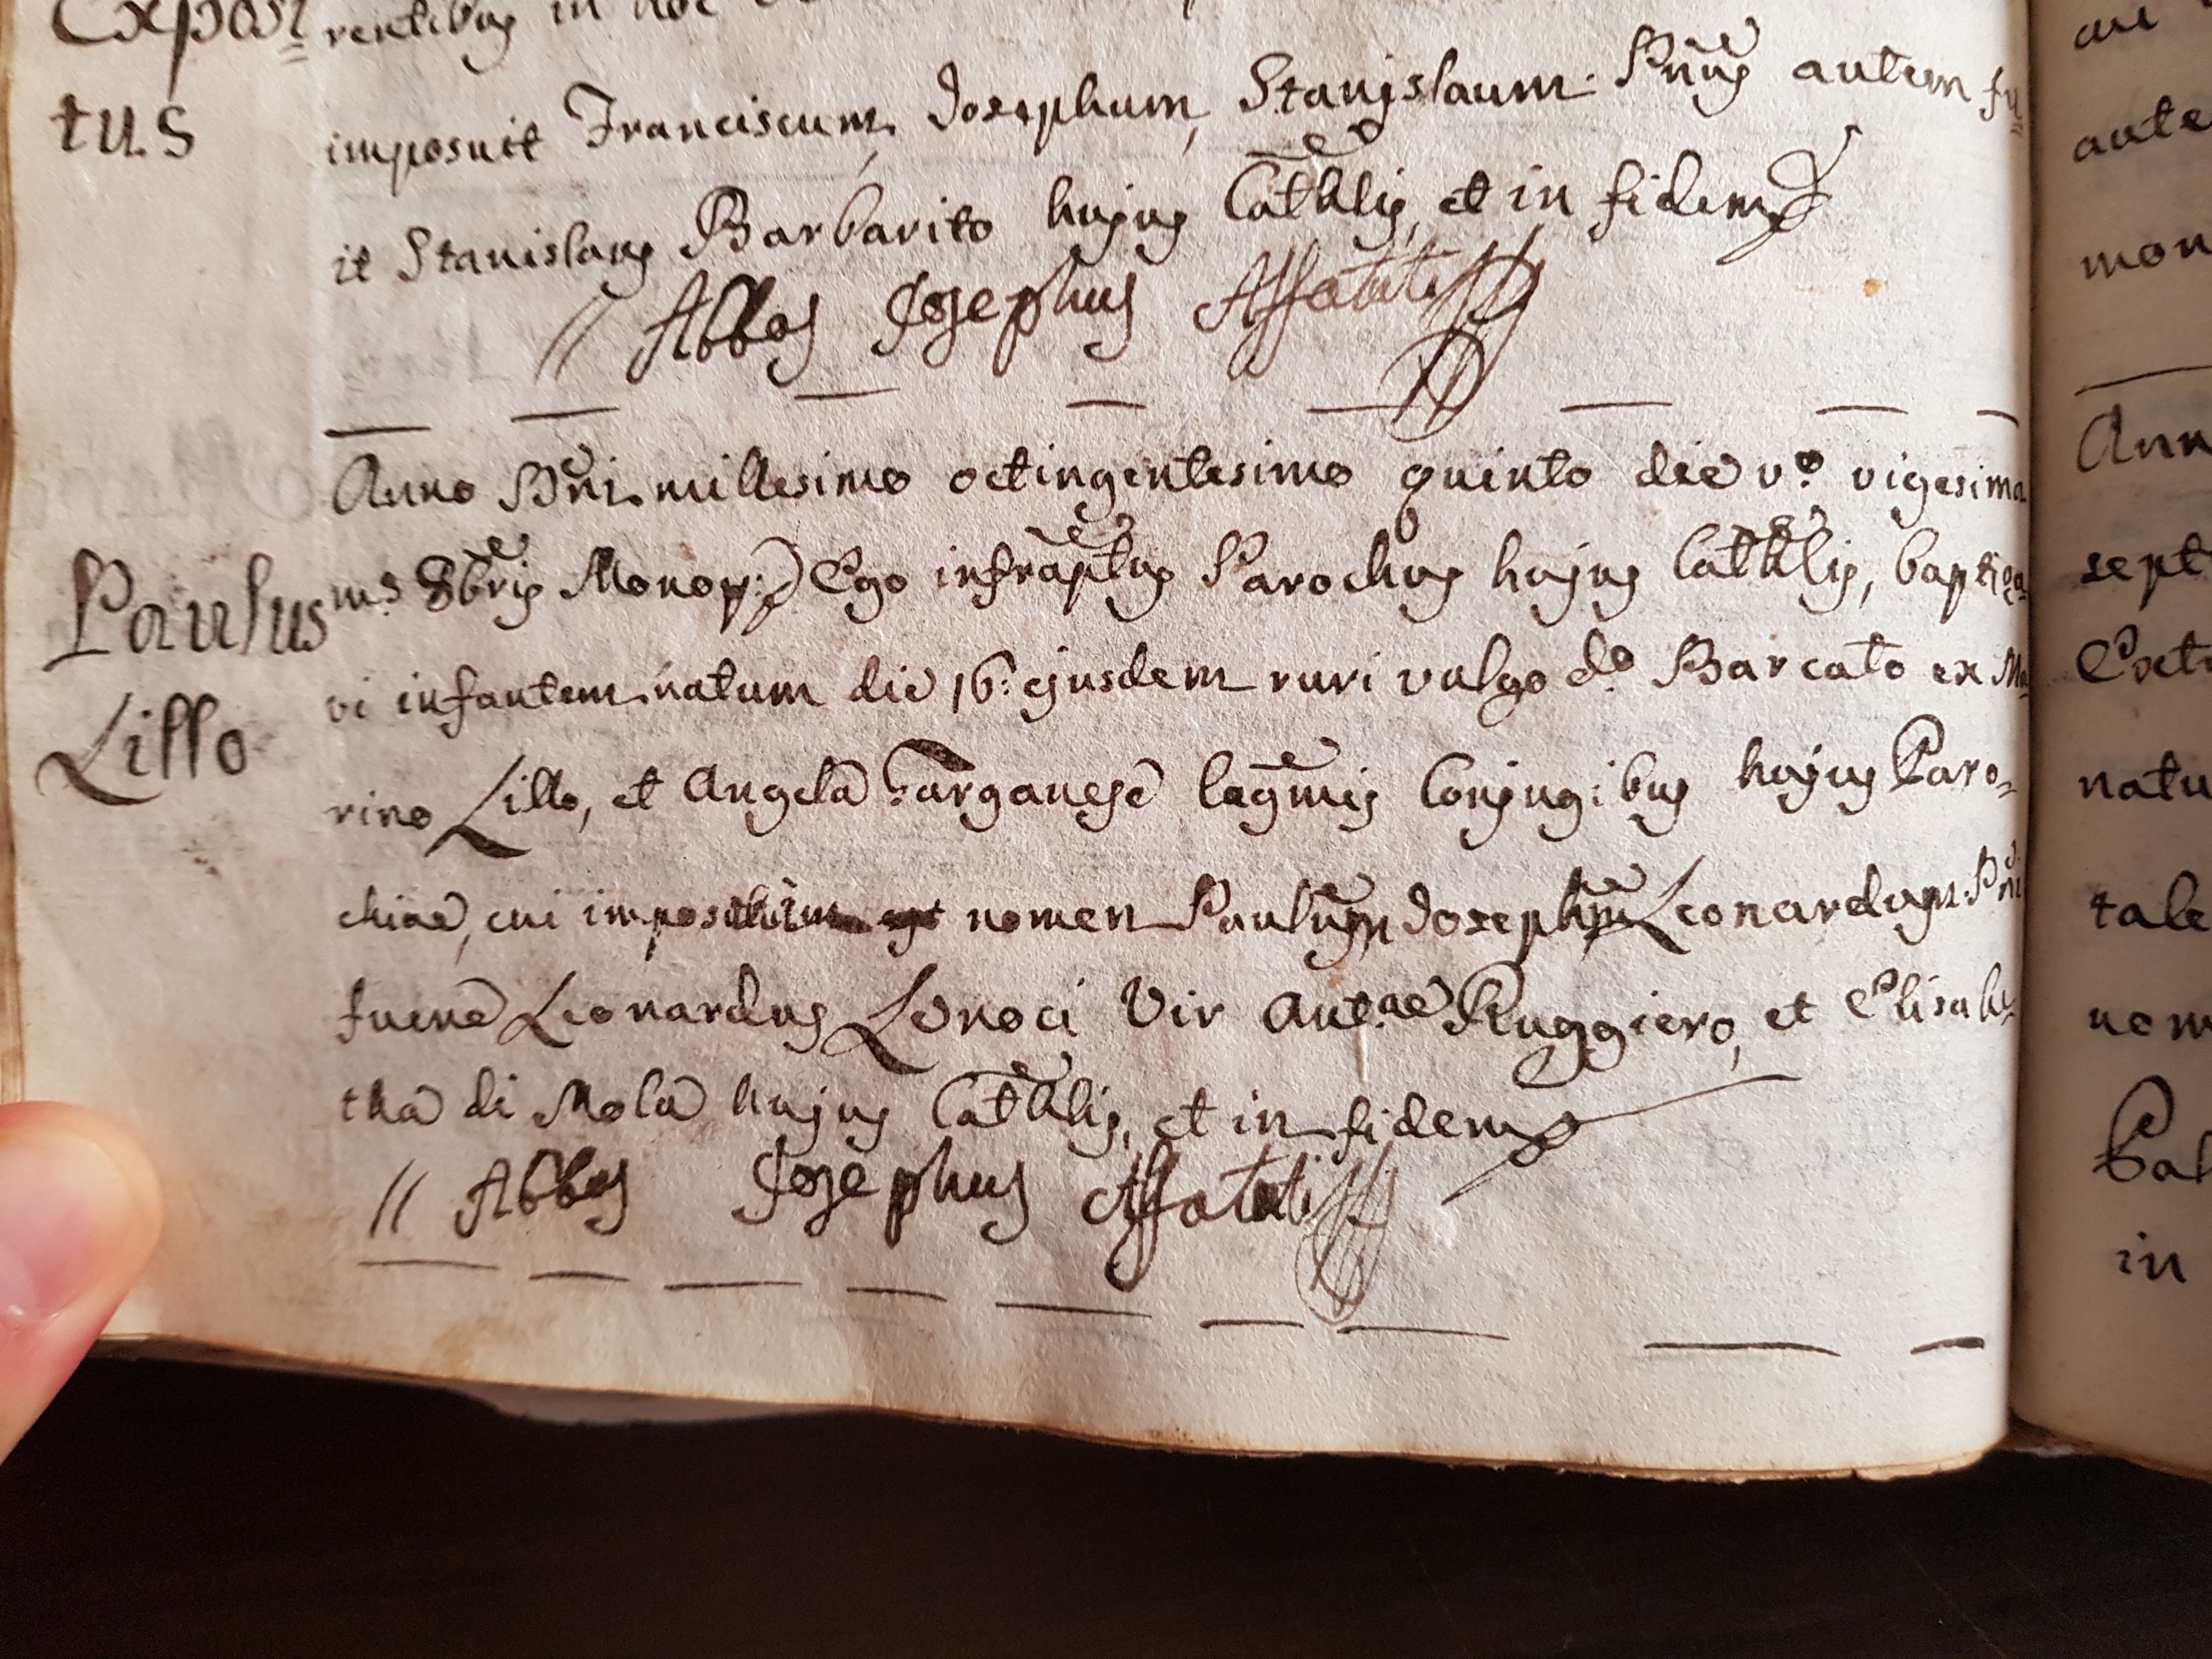 Exposi=
tus
rentibus in hoc
imposuit Franciscum, Josephum, Stanislaum: Pñus autem fu=
it Stanislaus Barbarito hujus Cat̃hlis, et in fidem
// Abbas Josephus Affatati
Paulus
Lillo
Anno Dñi millesimo octingentesimo quinto die vº vigesima
mˢ 8bris Monop: Ego infrap̃tus Parochus hujus Cat̃hlis, baptiza=
vi infantem natum die 16: ejusdem ruri vulgo dº Barcato ex Ma=
rino Lillo, et Angela Farganese legm̃is Conjugibus hujus Paro=
chiae, cui impositum est nomen Paulum Josephum Leonardum. Pñi
fuere Leonardus Lonoci Vir Antae Ruggiero, et Elisabe=
tha di Mola hujus Cat̃hlis, et in fidem
// Abbas Josephus Affatati
aute
mon
Ann
sept
natu
tale
nom
in